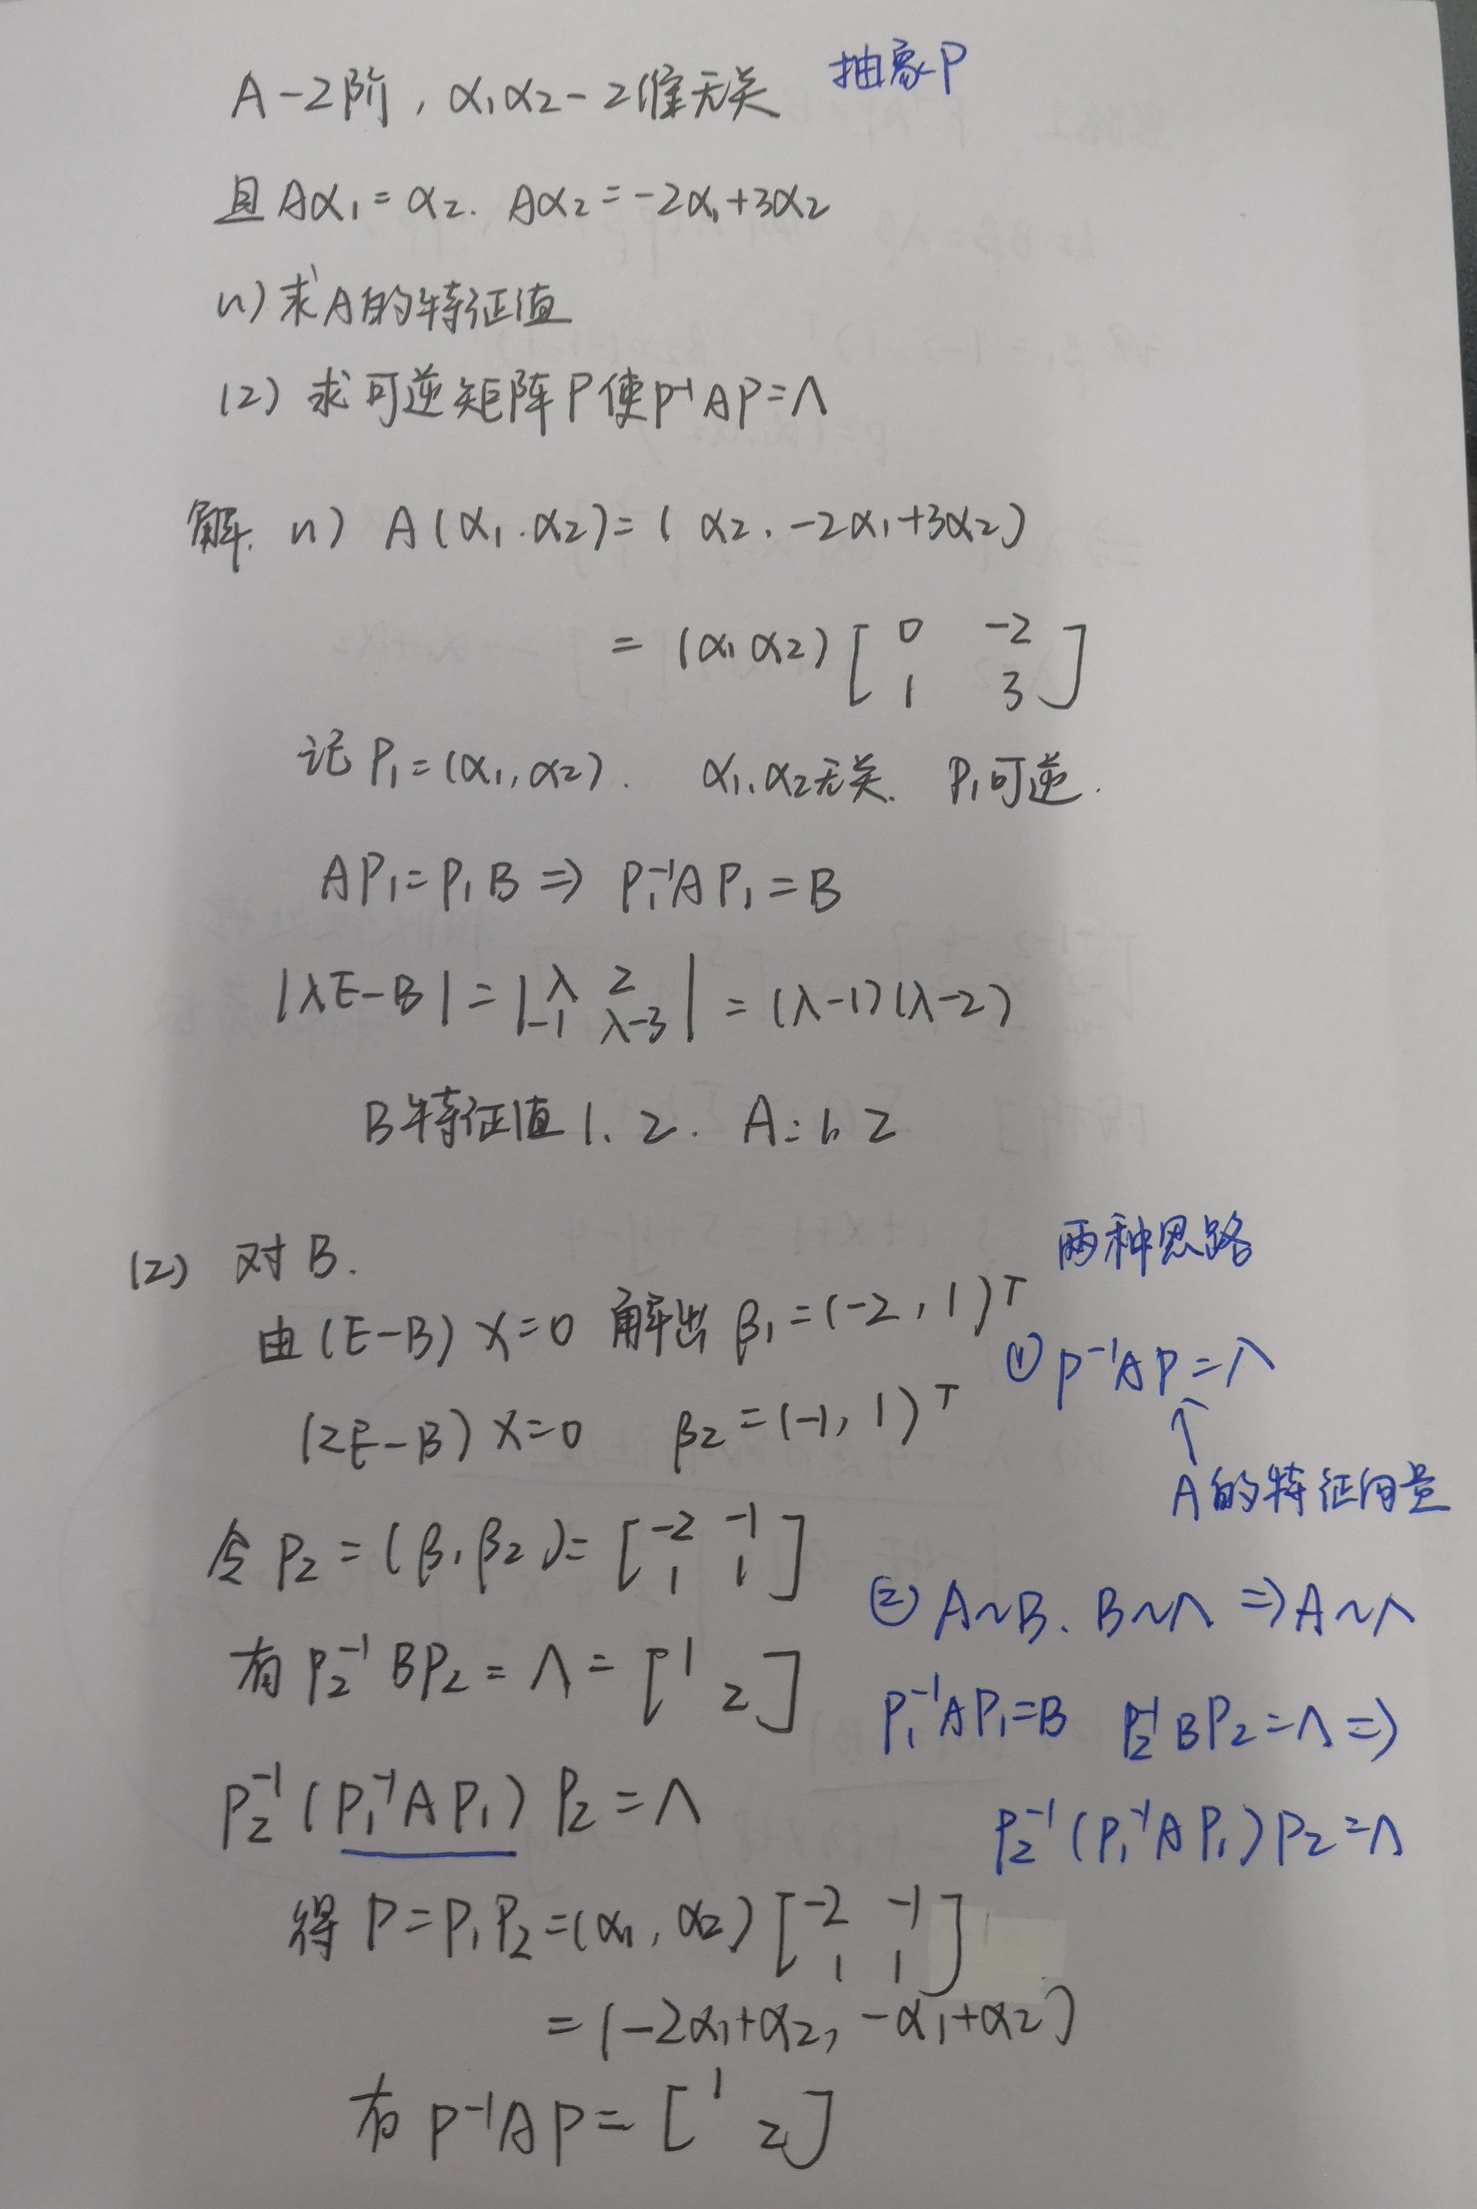 抽象P
A-2阶, α₁α₂-2维无关
且 Aα₁=α₂. Aα₂=-2α₁+3α₂
(1) 求A的特征值
(2) 求可逆矩阵P使P⁻¹AP=Λ
解. (1) A(α₁.α₂)=(α₂, -2α₁+3α₂)
=(α₁ α₂)[0 -2
1 3]
记P₁=(α₁,α₂). α₁,α₂无关. P₁可逆.
AP₁=P₁B⇒P₁⁻¹AP₁=B
|λE-B|=|λ 2
-1 λ-3|=(λ-1)(λ-2)
B特征值1、2. A:1,2
(2) 对B.
由(E-B)X=0 解出β₁=(-2,1)ᵀ
(2E-B)X=0 β₂=(-1,1)ᵀ
令P₂=(β₁β₂)=[-2 -1
1 1]
有P₂⁻¹BP₂=Λ=[1
2]
P₂⁻¹(P₁⁻¹AP₁)P₂=Λ
得P=P₁P₂=(α₁,α₂)[-2 -1
1 1]
=(-2α₁+α₂, -α₁+α₂)
有P⁻¹AP=[1
2]
两种思路
① P⁻¹AP=Λ
↑
A的特征向量
② A~B. B~Λ ⇒A~Λ
P₁⁻¹AP₁=B P₂⁻¹BP₂=Λ⇒
P₂⁻¹(P₁⁻¹AP₁)P₂=Λ